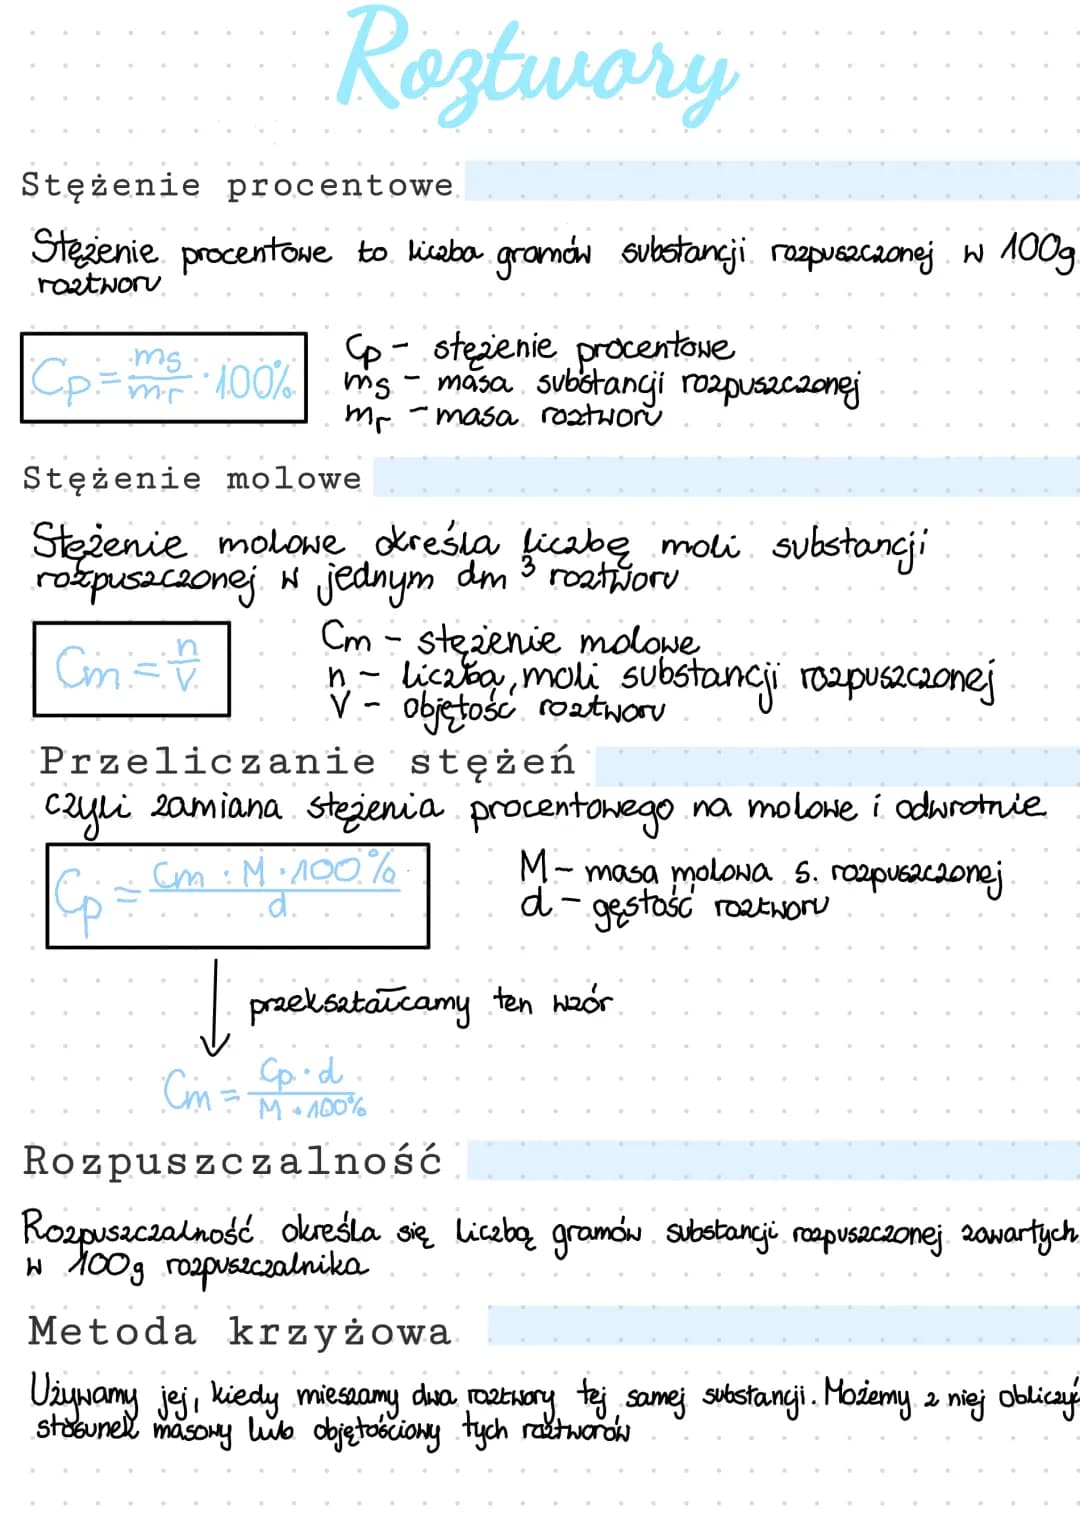 Roztwory
Stężenie procentowe
Stężenie procentowe to liczba gramów substancji rozpuszczonej w 100g
roztworu
Cp = ms/mr · 100%
Cp - stężenie procentowe
ms - masa substancji rozpuszczonej
mr - masa roztworu
Stężenie molowe
Stężenie molowe określa liczbę moli substancji
rozpuszczonej w jednym dm³ roztworu
Cm = n/V
Cm - stężenie molowe
n - liczba moli substancji rozpuszczonej
V - objętość roztworu
Przeliczanie stężeń
czyli zamiana stężenia procentowego na molowe i odwrotnie
Cp = Cm · M · 100% / d
M - masa molowa s. rozpuszczonej
d - gęstość roztworu
przekształcamy ten wzór
Cm = Cp · d / M · 100%
Rozpuszczalność
Rozpuszczalność określa się liczbą gramów substancji rozpuszczonej zawartych
w 100g rozpuszczalnika
Metoda krzyżowa
Używamy jej, kiedy mieszamy dwa roztwory tej samej substancji. Możemy z niej obliczyć
stosunek masowy lub objętościowy tych roztworów